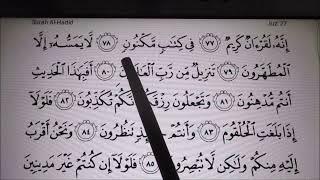 Surah Al-Hadid Juz 27
إِنَّهُۥ لَقُرْءَانٌ كَرِيمٌ ٧٧ فِى كِتَـٰبٍ مَّكْنُونٍ ٧٨ لَّا يَمَسُّهُۥٓ إِلَّا
ٱلْمُطَهَّرُونَ ٧٩ تَنزِيلٌ مِّن رَّبِّ ٨٠ أَفَبِهَـٰذَا ٱلْحَدِيثِ
أَنتُم مُّدْهِنُونَ ٨١ وَتَجْعَلُونَ تُكَذِّبُونَ ٨٢ فَلَوْلَآ
إِذَا بَلَغَتِ ٱلْحُلْقُومَ ٨٣ وَأَنتُمْ تَنظُرُونَ ٨٤ وَنَحْنُ أَقْرَبُ
إِلَيْهِ مِنكُمْ وَلَـٰكِن لَّا تُبْصِرُونَ ٨٥ فَلَوْلَآ إِن كُنتُمْ غَيْرَ مَدِينِينَ